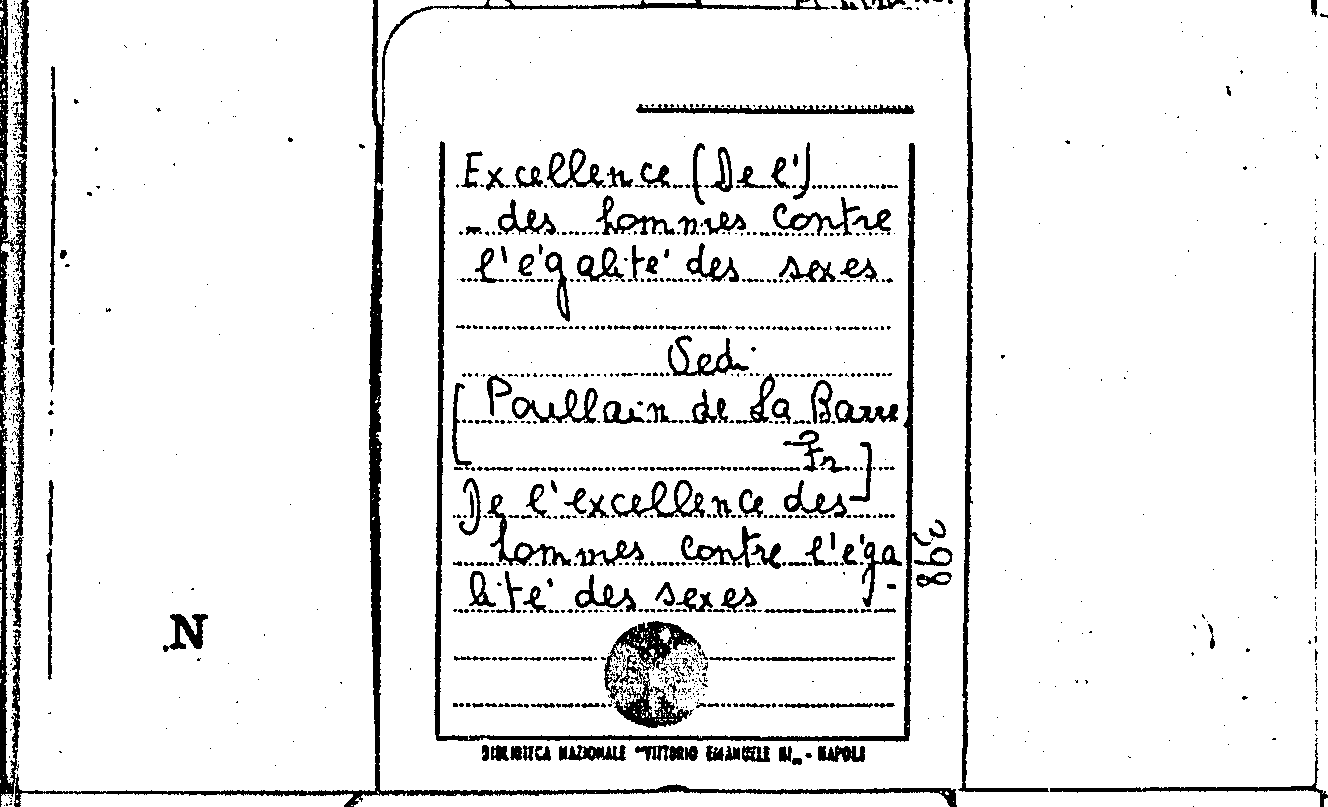 Excellence (De l')
- des hommes contre
l'égalité des sexes
Vedi
[Poullain de La Barre
Fr]
De l'excellence des
hommes contre l'éga-
lité des sexes
398
N
BIBLIOTECA NAZIONALE "VITTORIO EMANUELE III" - NAPOLI